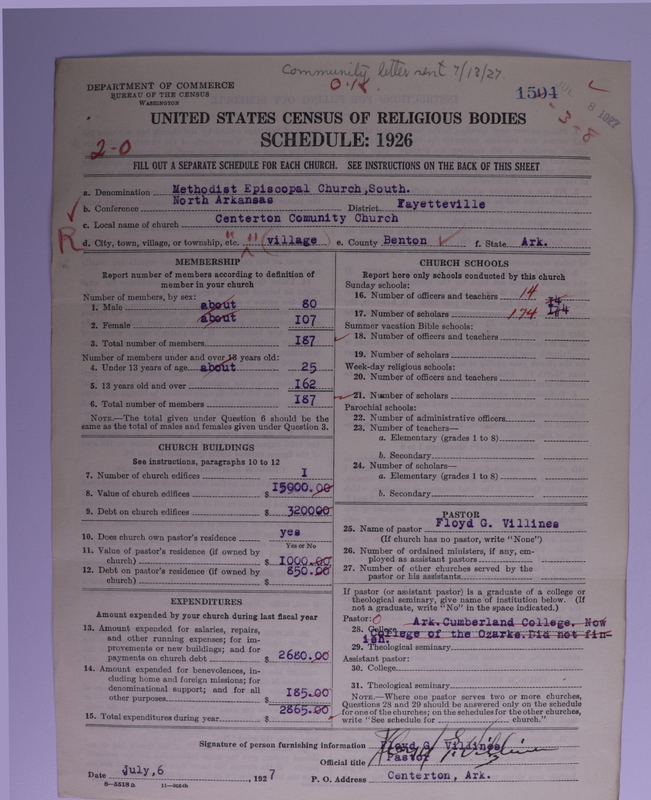 Community letter sent 7/12/27
O.K.
DEPARTMENT OF COMMERCE
BUREAU OF THE CENSUS
WASHINGTON
1504
JUL 8 1927
- 3 - 8
UNITED STATES CENSUS OF RELIGIOUS BODIES
SCHEDULE: 1926
2-0
FILL OUT A SEPARATE SCHEDULE FOR EACH CHURCH. SEE INSTRUCTIONS ON THE BACK OF THIS SHEET
a. Denomination Methodist Episcopal Church,South.
b. Conference North Arkansas District Fayetteville
c. Local name of church Centerton Comunity Church
R d. City, town, village, or township, etc. " " (village) e. County Benton f. State Ark.
MEMBERSHIP
Report number of members according to definition of
member in your church
Number of members, by sex:
1. Male about 80
2. Female about 107
3. Total number of members 187
Number of members under and over 13 years old:
4. Under 13 years of age about 25
5. 13 years old and over 162
6. Total number of members 187
NOTE.—The total given under Question 6 should be the
same as the total of males and females given under Question 3.
CHURCH BUILDINGS
See instructions, paragraphs 10 to 12
7. Number of church edifices 1
8. Value of church edifices $ 15000.00
9. Debt on church edifices $ 320000
10. Does church own pastor's residence yes
Yes or No
11. Value of pastor's residence (if owned by
church) $ 1000.00
12. Debt on pastor's residence (if owned by
church) $ 850.00
EXPENDITURES
Amount expended by your church during last fiscal year
13. Amount expended for salaries, repairs,
and other running expenses; for im-
provements or new buildings; and for
payments on church debt $ 2680.00
14. Amount expended for benevolences, in-
cluding home and foreign missions; for
denominational support; and for all
other purposes $ 185.00
15. Total expenditures during year $ 2865.00
CHURCH SCHOOLS
Report here only schools conducted by this church
Sunday schools:
16. Number of officers and teachers 14 14
17. Number of scholars 174
Summer vacation Bible schools:
18. Number of officers and teachers
19. Number of scholars
Week-day religious schools:
20. Number of officers and teachers
21. Number of scholars
Parochial schools:
22. Number of administrative officers
23. Number of teachers—
a. Elementary (grades 1 to 8)
b. Secondary
24. Number of scholars—
a. Elementary (grades 1 to 8)
b. Secondary
PASTOR
25. Name of pastor Floyd G. Villines
(If church has no pastor, write "None")
26. Number of ordained ministers, if any, em-
ployed as assistant pastors
27. Number of other churches served by the
pastor or his assistants
If pastor (or assistant pastor) is a graduate of a college or
theological seminary, give name of institution below. (If
not a graduate, write "No" in the space indicated.)
Pastor: O Ark.Cumberland College. Now
28. College College of the Ozarks.Did not fin-
ish.
29. Theological seminary
Assistant pastor:
30. College
31. Theological seminary
NOTE.—Where one pastor serves two or more churches,
Questions 28 and 29 should be answered only on the schedule
for one of the churches; on the schedules for the other churches,
write "See schedule for church."
Signature of person furnishing information Floyd G. Villines
Floyd G. Villines
Official title Pastor
Date July,6 , 1927 P. O. Address Centerton, Ark.
8—5518 a